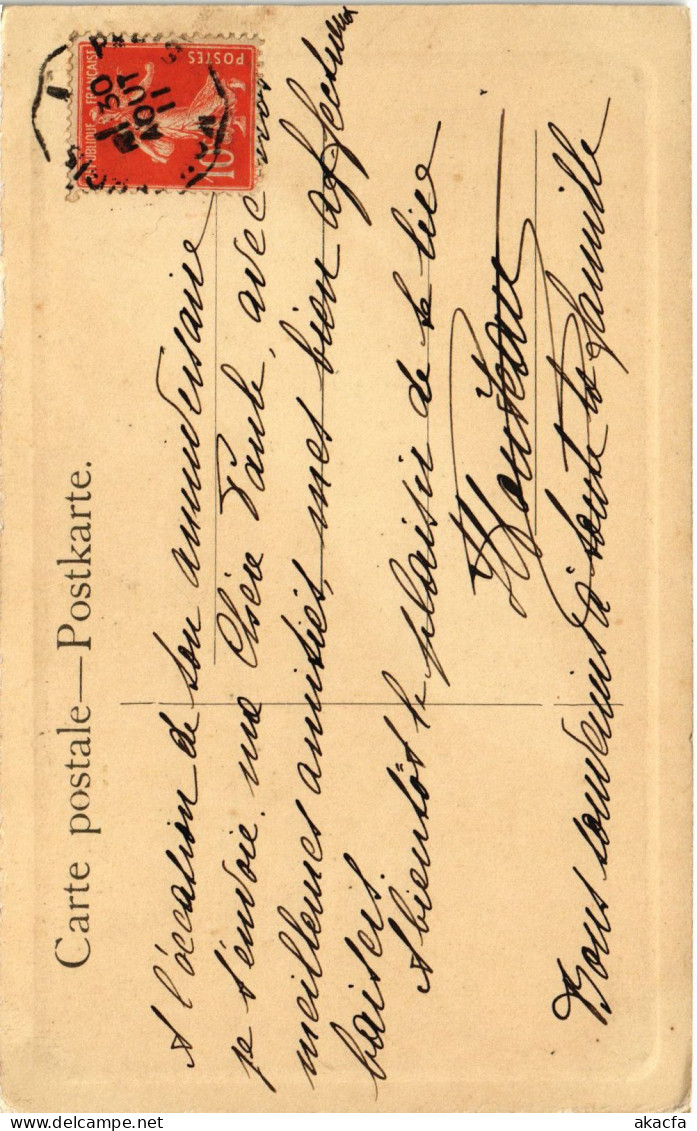 Carte postale—Postkarte.
RÉPUBLIQUE FRANÇAISE
POSTES
10
30
AOUT
11
A l'occasion de ton anniversaire
je t'envoie ma Chère Paule, avec mes
meilleures amitiés, mes bien affectueux
baisers.
A bientôt le plaisir de te lire
Bons souvenirs à toute la famille
www.akacfa.com
akacfa